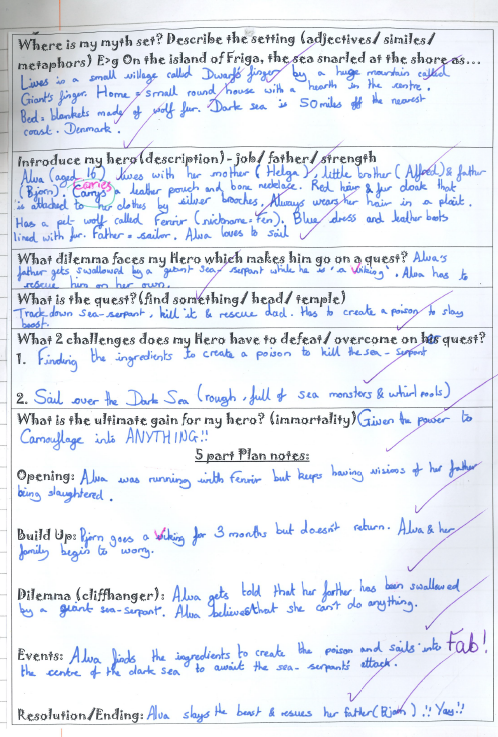 Where is my myth set? Describe the setting (adjectives/ similes/
metaphors) E>g On the island of Friga, the sea snarled at the shore as...
Lives in a small village called Dwarf's finger by a huge mountain called
Giant's finger. Home = small round house with a hearth in the centre.
Bed = blankets made of wolf fur. Dark sea is 50 miles off the nearest
coast. Denmark.
Introduce my hero(description) - job/ father/ strength
Alva (aged 16) lives with her mother (Helga), little brother (Alfred) & father
(Bjorn). Carrys carries a leather pouch and bone necklace. Red hair & fur cloak that
is attached to her clothes by silver brooches. Always wears her hair in a plait.
Has a pet wolf called Fenrir (nickname: Fen). Blue dress and leather boots
lined with fur. Father = sailor. Alva loves to sail
What dilemma faces my Hero which makes him go on a quest? Alva's
father gets swallowed by a giant sea-serpent while he is 'a viking'. Alva has to
rescue him on her own.
What is the quest? (find something/ head/ temple)
Track down sea-serpent, kill it & rescue dad. Has to create a poison to slay
beast.
What 2 challenges does my Hero have to defeat/ overcome on her quest?
1. Finding the ingredients to create a poison to kill the sea-serpent
2. Sail over the Dark Sea (rough, full of sea monsters & whirl pools)
What is the ultimate gain for my hero? (immortality) Given the power to
Camouflage into ANYTHING!!
5 part Plan notes:
Opening: Alva was running with Fenrir but keeps having visions of her father
being slaughtered.
Build Up: Bjorn goes a viking for 3 months but doesn't return. Alva & her
family begin to worry.
Dilemma (cliffhanger): Alva gets told that her farther has been swallowed
by a giant sea-serpent. Alva believes that she can't do anything.
Events: Alva finds the ingredients to create the poison and sails into Fab!
the centre of the dark sea to await the sea-serpent's attack.
Resolution/Ending: Alva slays the beast & resues her father (Bjorn) .!! Yay!!